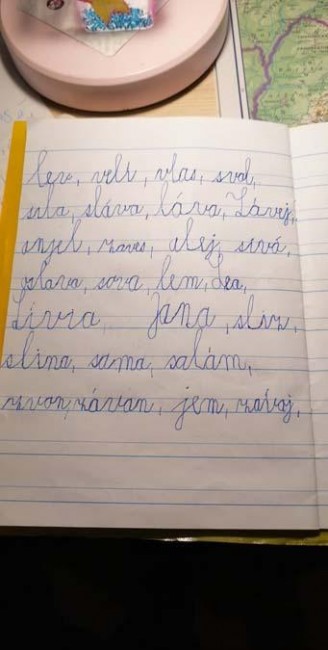 lev, velk, vlas, sval,
sila, sláva, láva, Závij,
anjel, zaves, alej, sivá,
oslava, sova, lem, Lea,
Lívia, Jana, sliz,
slina, sama, salám,
zvon, závan, jem, zavaj,